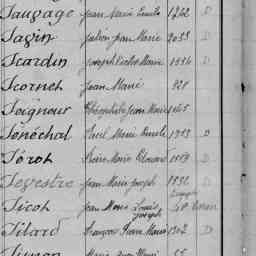 Sauzage Jean Marie Emile 1262 D
Sazin Julien Jean Marie 2033 D
Scardin Joseph Victor Marie 1534 D
Scornet Jean Marie 821
Seigneur Théophile Jean Marie
Sénéchal Paul Marie Emile 1753 D
Sérot Pierre Marie Edouard 1559 D
Sevestre Jean Marie Joseph 1832 D
Sicot Jean Marie Louis Joseph
Silard François Jean Marie 1302 D
Simon Marie